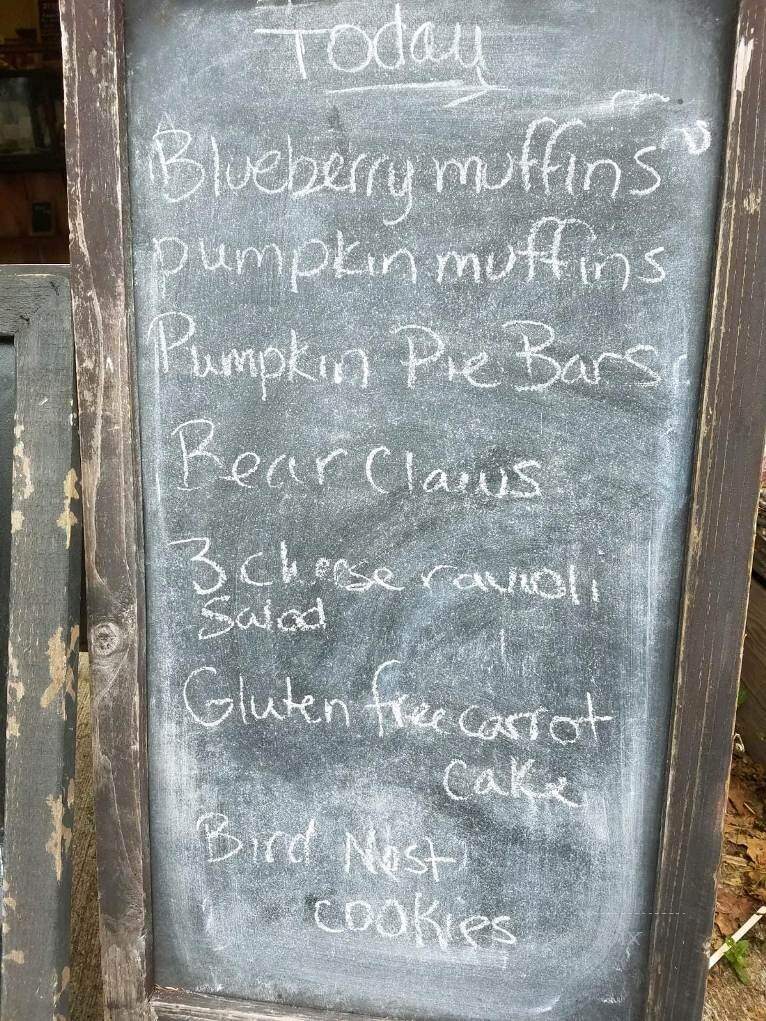 Today
Blueberry muffins
pumpkin muffins
Pumpkin Pie Bars
Bear Claws
3 cheese ravioli
Salad
Gluten free carrot
cake
Bird Nest
cookies